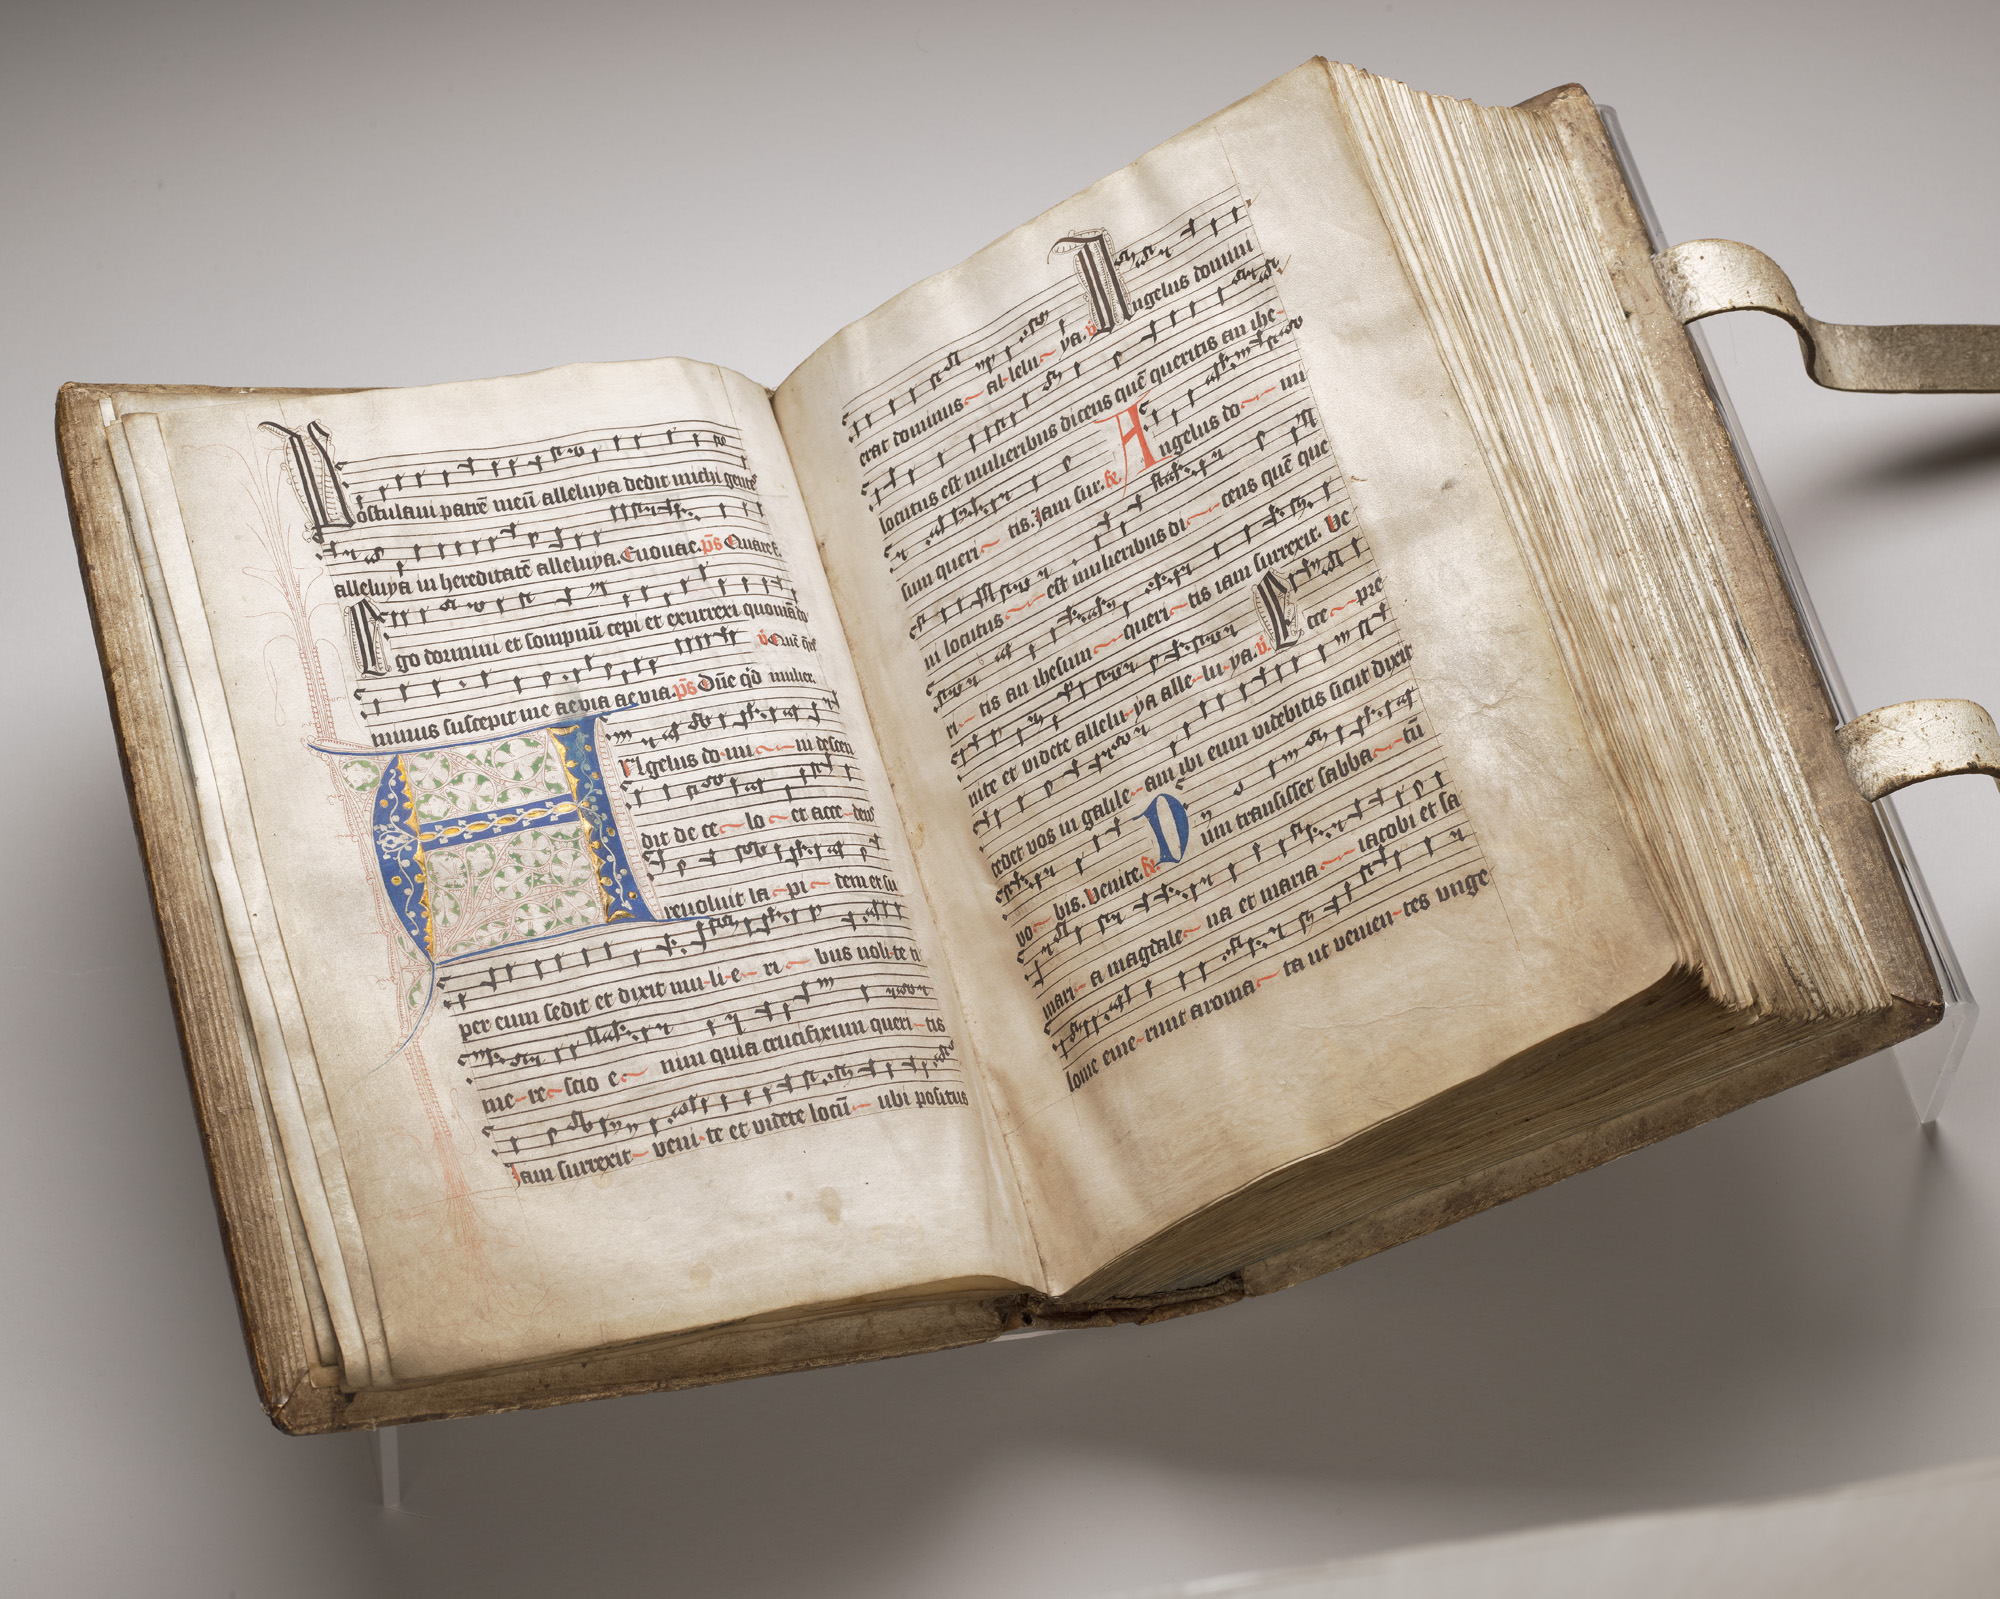 Postulaui patrē meū alleluya dedit michi gentes
alleluya in hereditatē alleluya. Euouae. ps Quare f.
Ego dormiui et sompnū cepi et exurrexi quoniā do
v Quē qris
minus suscepit me aevia aevia. ps Dn̄e qͥd mulier.
Angelus do-mi-ni descen
dit de ce-lo-et acce-dens
reuoluit la-pi-dem et su
per eum sedit et dixit mu-li-e-ri-bus noli-te ti
me-re-scio e-nim quia crucifixum queri-tis
Iam surrexit-veni-te et videte locū-ubi positus
erat dominus-al-lelu-ya. v Angelus domini
locutus est mulieribus dicens quē queritis an ihe-
sum queri-tis. Iam sur. R Angelus do-mi
ni locutus-est mulieribus di-cens quē que
ri-tis an ihesum-queri-tis iam surrexit. Ve
nite et videte allelu-ya alle-lu-ya. v Ecce-pre
cedet vos in galile-am ibi eum videbitis sicut dixit
vo-bis. Venite. R Dum transisset sabba-tū
mari-a magdale-na et maria-iacobi et sa
lome eme-runt aroma-ta ut venien-tes vnge